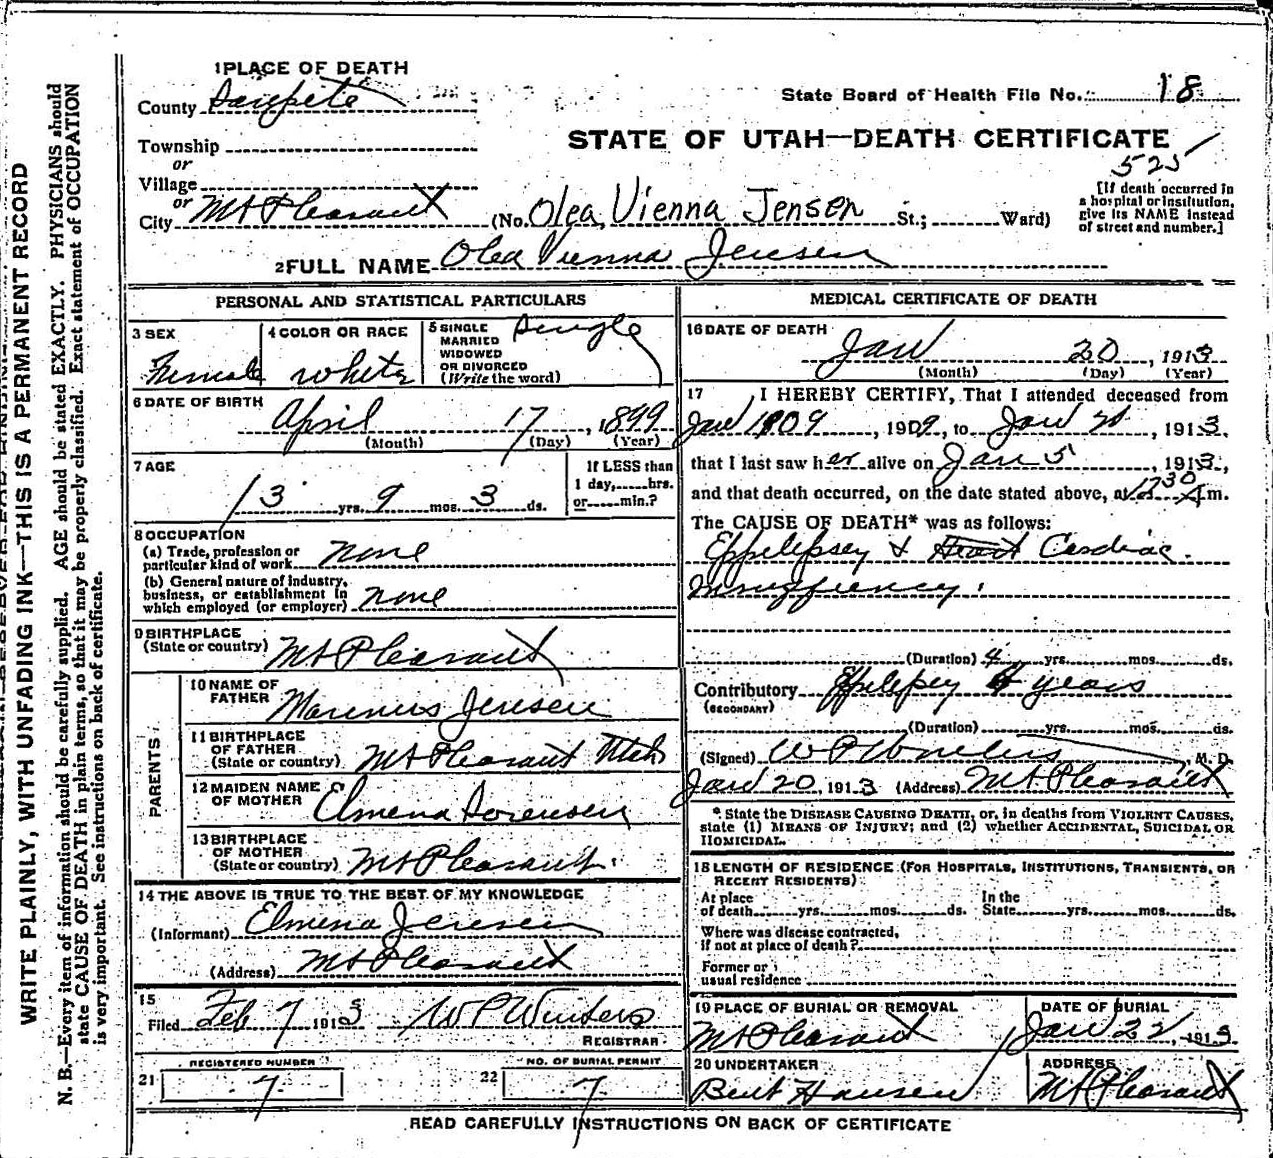 1 PLACE OF DEATH
County Sanpete
State Board of Health File No. 18
STATE OF UTAH—DEATH CERTIFICATE
525
Township
or
Village
or
City Mt Pleasant (No. Olea Vienna Jensen St.; Ward)
[If death occurred in
a hospital or institution,
give its NAME instead
of street and number.]
2 FULL NAME Olea Vienna Jensen
PERSONAL AND STATISTICAL PARTICULARS
3 SEX
Female
4 COLOR OR RACE
white
5 SINGLE
MARRIED
WIDOWED
OR DIVORCED
(Write the word)
Single
6 DATE OF BIRTH
April 17, 1899
(Month) (Day) (Year)
7 AGE
13 yrs. 9 mos. 3 ds.
If LESS than
1 day, hrs.
or min.?
8 OCCUPATION
(a) Trade, profession or
particular kind of work none
(b) General nature of industry,
business, or establishment in
which employed (or employer) none
9 BIRTHPLACE
(State or country) Mt Pleasant
PARENTS
10 NAME OF
FATHER Marinus Jensen
11 BIRTHPLACE
OF FATHER
(State or country) Mt Pleasant Utah
12 MAIDEN NAME
OF MOTHER Elmena Sorensen
13 BIRTHPLACE
OF MOTHER
(State or country) Mt Pleasant.
14 THE ABOVE IS TRUE TO THE BEST OF MY KNOWLEDGE
(Informant) Elmena Jensen
(Address) Mt Pleasant
15
Filed Feb 7 1913 W P Winters
REGISTRAR
REGISTERED NUMBER
21 7
NO. OF BURIAL PERMIT
22 7
MEDICAL CERTIFICATE OF DEATH
16 DATE OF DEATH
Jan 20, 1913
(Month) (Day) (Year)
17 I HEREBY CERTIFY, That I attended deceased from
Jan 1909, 1909, to Jan 20, 1913.
that I last saw her alive on Jan 5, 1913,
and that death occurred, on the date stated above, at 1230 A m.
The CAUSE OF DEATH* was as follows:
Eppilepsey & Heart Cardiac
Insuffiency.
(Duration) 4 yrs. mos. ds.
Contributory Epilepsy 4 years
(SECONDARY)
(Duration) yrs. mos. ds.
(Signed) W P Winters, M. D.
Jan 20, 1913 (Address) Mt Pleasant
*State the DISEASE CAUSING DEATH, or, in deaths from VIOLENT CAUSES,
state (1) MEANS OF INJURY; and (2) whether ACCIDENTAL, SUICIDAL OR
HOMICIDAL.
18 LENGTH OF RESIDENCE (FOR HOSPITALS, INSTITUTIONS, TRANSIENTS, OR
RECENT RESIDENTS)
At place
of death yrs. mos. ds.
In the
State yrs. mos. ds.
Where was disease contracted,
if not at place of death?
Former or
usual residence
19 PLACE OF BURIAL OR REMOVAL
Mt Pleasant
DATE OF BURIAL
Jan 22, 1913
20 UNDERTAKER
Bent Hansen
ADDRESS
Mt Pleasant
READ CAREFULLY INSTRUCTIONS ON BACK OF CERTIFICATE
WRITE PLAINLY, WITH UNFADING INK—THIS IS A PERMANENT RECORD
N. B.—Every item of information should be carefully supplied. AGE should be stated EXACTLY. PHYSICIANS should
state CAUSE OF DEATH in plain terms, so that it may be properly classified. Exact statement of OCCUPATION
is very important. See instructions on back of certificate.